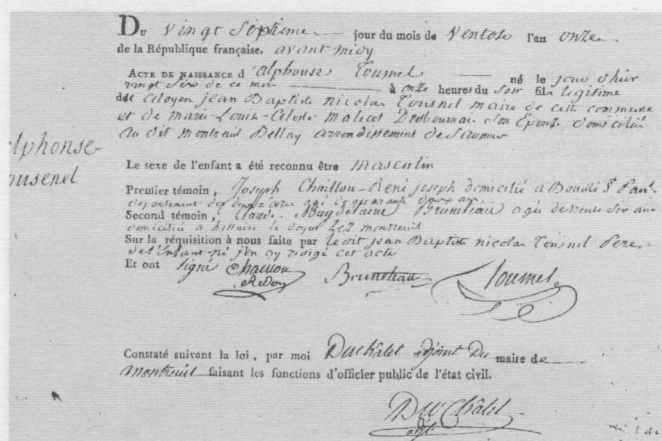 Du vingt Septieme jour du mois de Ventose l'an onze
de la République française. avant midy
Acte de naissance d'alphonse Tousnel né le jour d'hier
vingt six de ce mois à onze heures du Soir fils legitime
de Citoyen jean Baptiste nicolas Tousnel maire de cette commune
et de marie Louise Celeste son Epouse domiciliés
au dit montreuil Bellay arrondissement de Saumur
alphonse
Tousenel
Le sexe de l'enfant a été reconnu être masculin
Premier témoin, Joseph Chaillou René joseph domicilié a Bouillé St
departement des deux quarante deux ans
Second témoin, Claude Magdelaine Bruneteau agé de trente six ans
domicilié a montreuil
Sur la réquisition à nous faite par le dit jean Baptiste nicolas Tousnel Pere
de l'Enfant j'en ay redigé cet acte
Et ont signé Chaillou Bruneteau Tousnel
Constaté suivant la loi, par moi Duchatel adjoint Du maire de
montreuil faisant les fonctions d'officier public de l'état civil.
Du Chatel